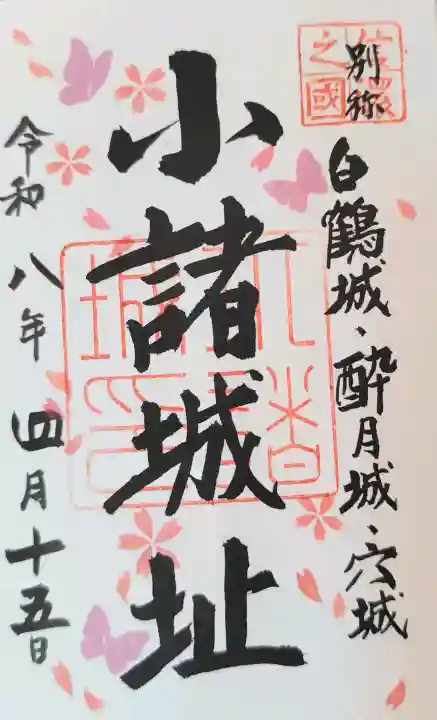 信濃
之國
別称
白鶴城・酔月城・穴城
小諸城址
令和八年四月十五日